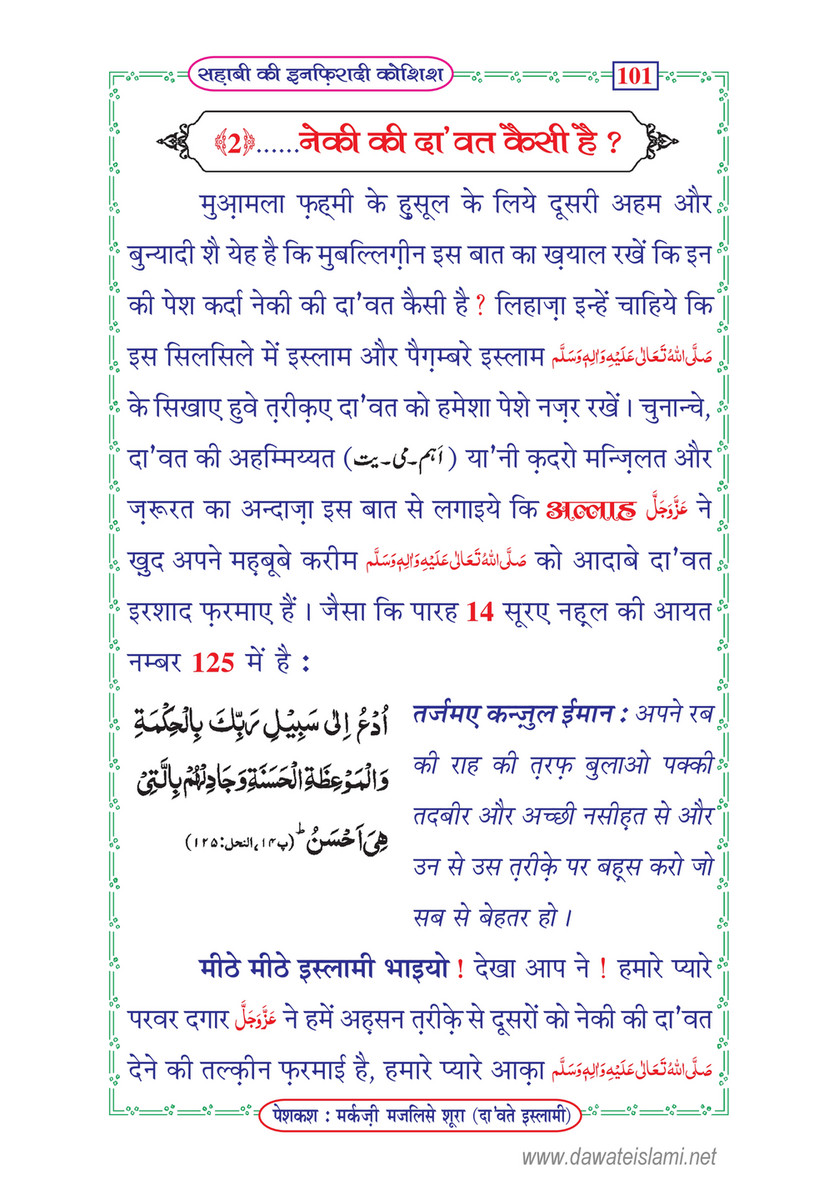 सह़ाबी की इनफ़िरादी कोशिश
101
﴾2﴿......नेकी की दा'वत कैसी है ?
मुआ़मला फ़ह्मी के हु़सूल के लिये दूसरी अहम और
बुन्यादी शै येह है कि मुबल्लिग़ीन इस बात का ख़याल रखें कि इन
की पेश कर्दा नेकी की दा'वत कैसी है ? लिहाज़ा इन्हें चाहिये कि
इस सिलसिले में इस्लाम और पैग़म्बरे इस्लाम صَلَّی اللهُ تَعَالٰی عَلَیْهِ وَاٰلِهٖ وَسَلَّم
के सिखाए हुवे त़रीक़ए दा'वत को हमेशा पेशे नज़र रखें । चुनान्चे,
दा'वत की अहम्मिय्यत (اَہَم۔می۔یت) या'नी क़दरो मन्ज़िलत और
ज़रूरत का अन्दाज़ा इस बात से लगाइये कि अल्लाह عَزَّوَجَلَّ ने
ख़ुद अपने मह़बूबे करीम صَلَّی اللهُ تَعَالٰی عَلَیْهِ وَاٰلِهٖ وَسَلَّم को आदाबे दा'वत
इरशाद फ़रमाए हैं । जैसा कि पारह 14 सूरए नह़्ल की आयत
नम्बर 125 में है :
اُدْعُ اِلٰی سَبِیْلِ رَبِّكَ بِالْحِكْمَةِ
وَالْمَوْعِظَةِ الْحَسَنَةِ وَجَادِلْهُمْ بِالَّتِیْ
هِیَ اَحْسَنُ ؕ (پ۱۴، النحل:۱۲۵)
तर्जमए कन्ज़ुल ईमान : अपने रब
की राह की त़रफ़ बुलाओ पक्की
तदबीर और अच्छी नसीह़त से और
उन से उस त़रीक़े पर बह़्स करो जो
सब से बेहतर हो ।
मीठे मीठे इस्लामी भाइयो ! देखा आप ने ! हमारे प्यारे
परवर दगार عَزَّوَجَلَّ ने हमें अह़्सन त़रीक़े से दूसरों को नेकी की दा'वत
देने की तल्क़ीन फ़रमाई है, हमारे प्यारे आक़ा صَلَّی اللهُ تَعَالٰی عَلَیْهِ وَاٰلِهٖ وَسَلَّم
पेशकश : मर्कज़ी मजलिसे शूरा (दा'वते इस्लामी)
www.dawateislami.net